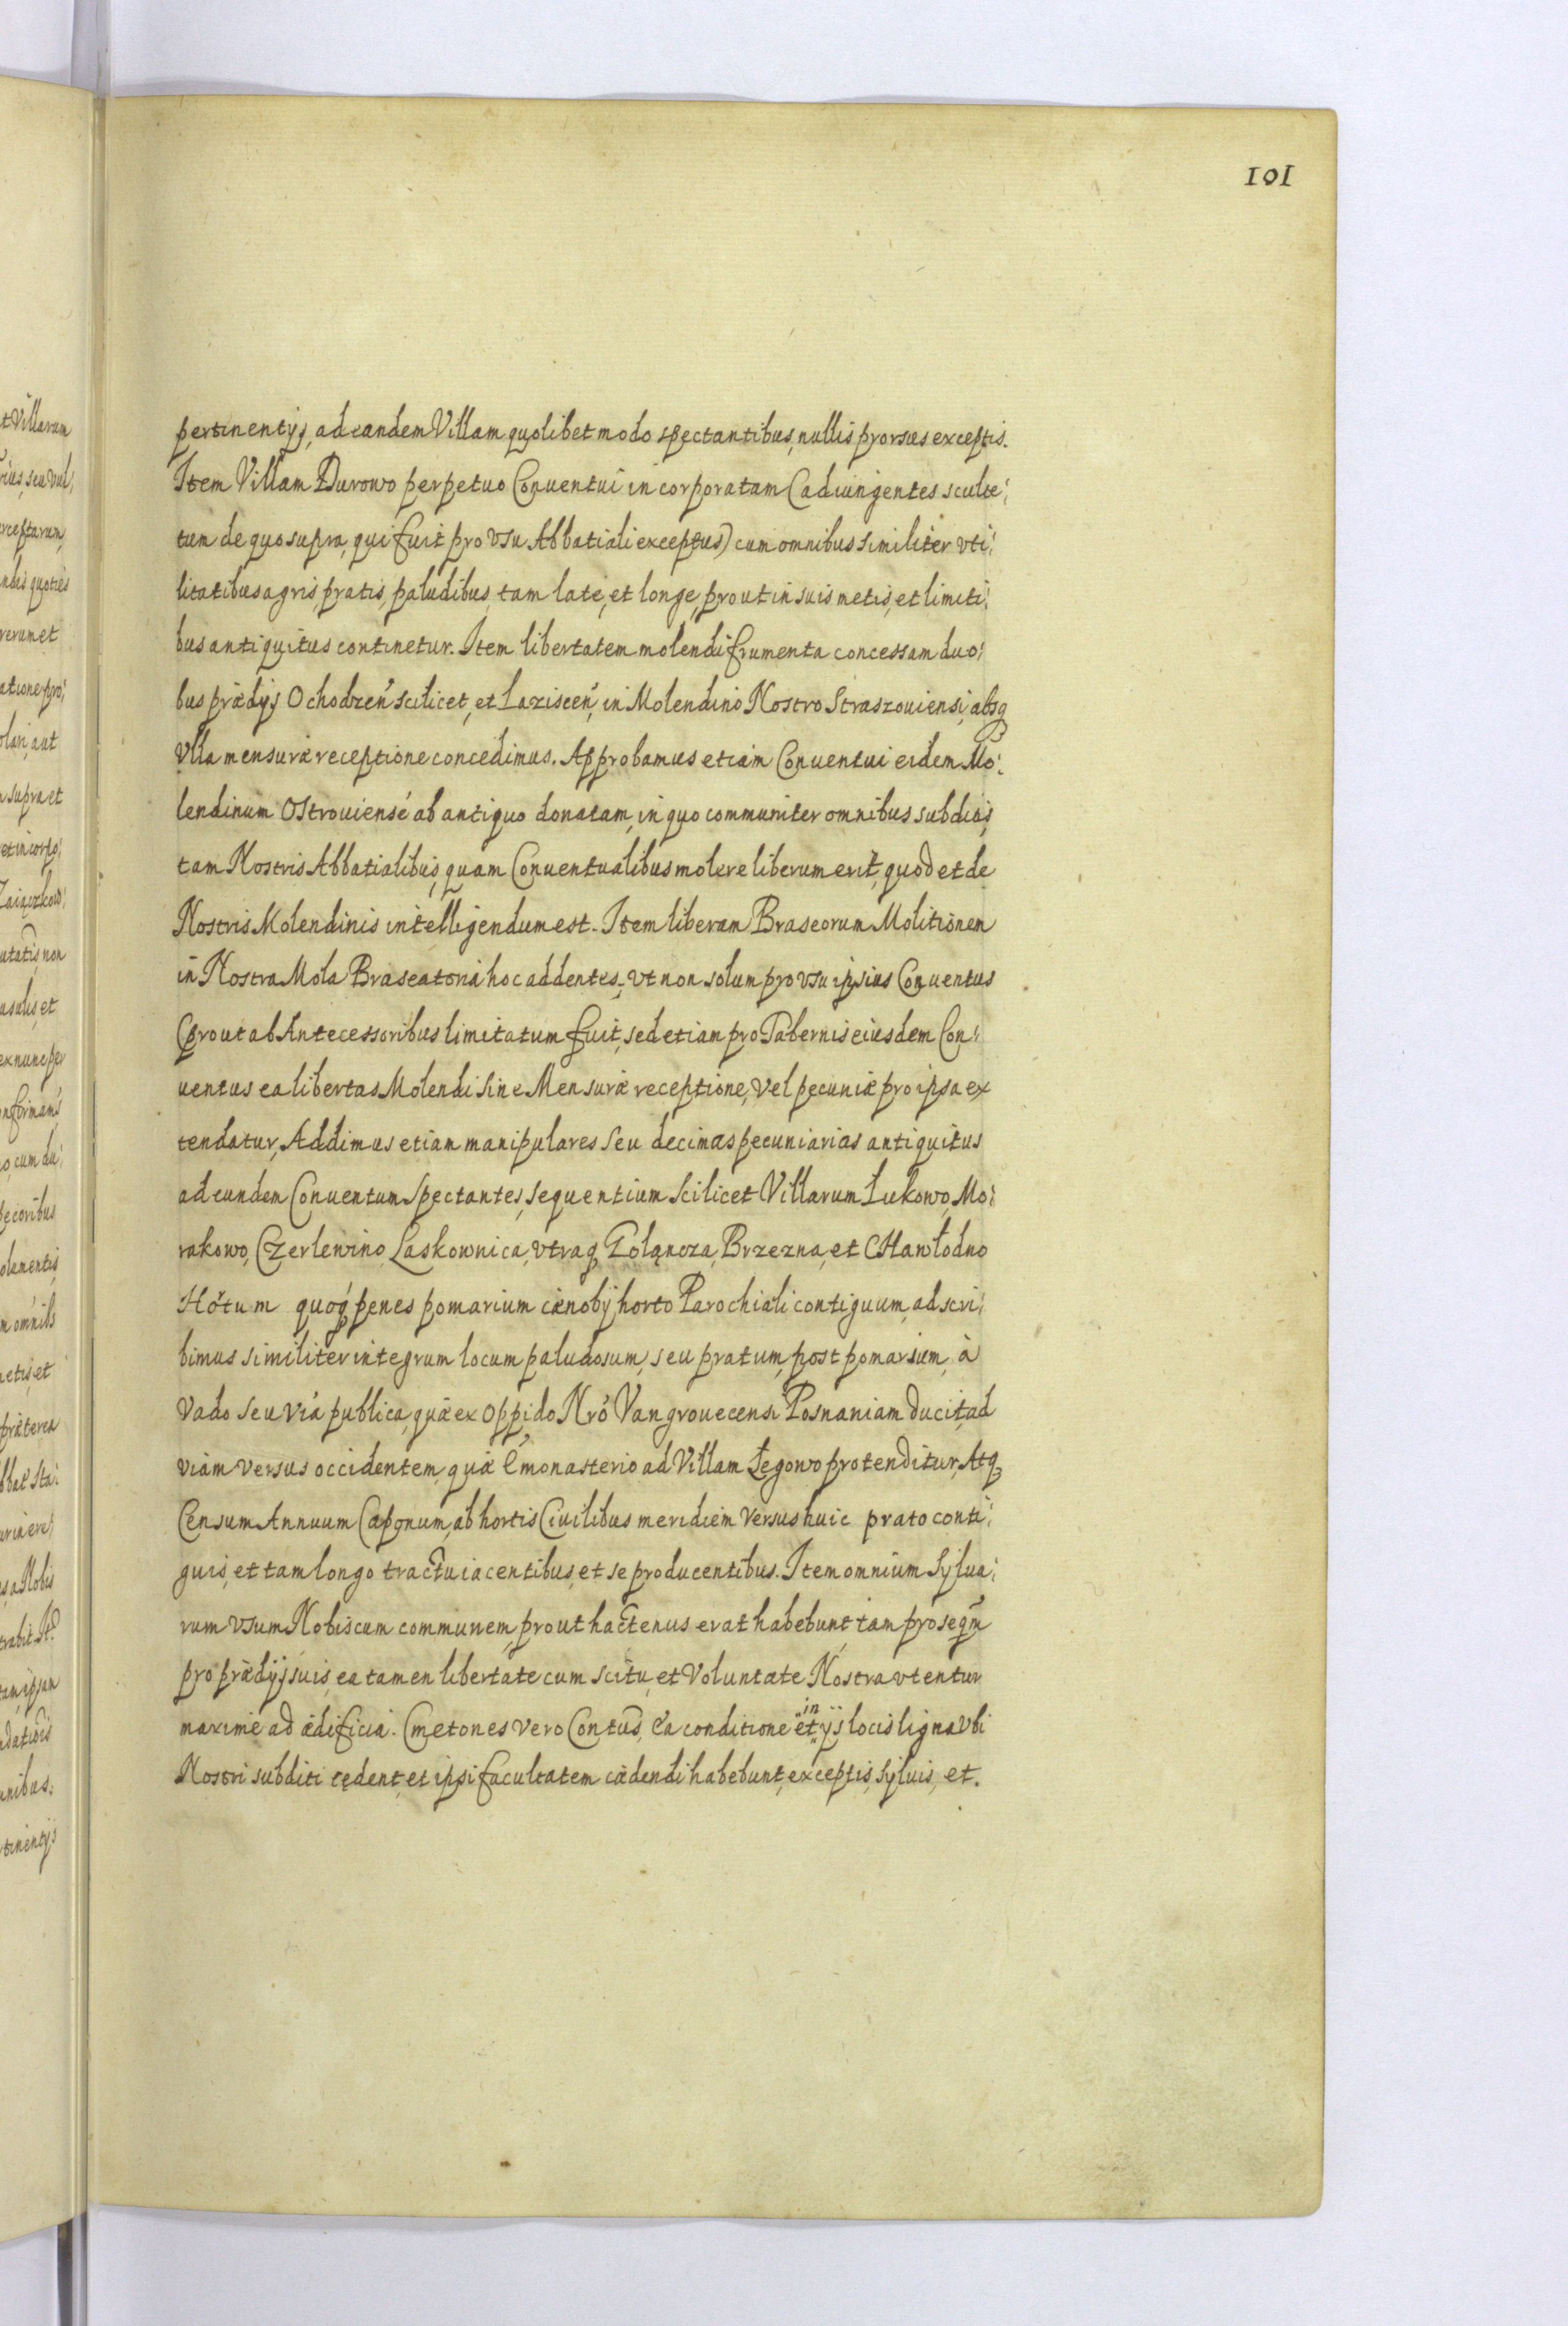 101
pertinentÿs, ad eandem Villam quolibet modo spectantibus, nullis prorsus exceptis.
Item Villam Durowo perpetuo Conuentui incorporatam (adiungentes sculte:
tum de quo supra, qui fuit pro vsu Abbatiali exceptus) cum omnibus similiter vti:
litatibus agris, pratis, paludibus, tam late, et longe, prout in suis metis, et limiti:
bus antiquitus continetur. Item libertatem molendi frumenta concessam duo:
bus prædÿs Ochodzen̄ scilicet, et Laziscen̄, in Molendino Nostro Straszouiensi, absq
vlla mensuræ receptione concedimus. Approbamus etiam Conuentui eidem Mo:
lendinum Ostrouiense ab antiquo donatam, in quo communiter omnibus subditis,
tam Nostris Abbatialibus, quam Conuentualibus molere liberum erit, quod et de
Nostris Molendinis intelligendum est. Item liberam Braseorum Molitionem
in Nostra Mola Braseatoria hoc addentes, vt non solum pro vsu ipsius Conuentus
(prout ab Antecessoribus limitatum fuit, sed etiam pro Tabernis eiusdem Con:
uentus ea libertas Molendi sine Mensuræ receptione, vel pecuniæ pro ipsa ex
tendatur, Addimus etiam manipulares seu decimas pecuniarias antiquitus
ad eundem Conuentum spectantes, sequentium scilicet Villarum Łukowo, Mo:
rakowo, Czerlewino, Laskownica, vtraq Gołąncza, Brzezna, et CHawłodno
Hōtum quoq penes pomarium cænobÿ horto Parochiali contiguum, adscri:
bimus similiter integrum locum paludosum, seu pratum, post pomarium, à
vado seu via publica, quæ ex Oppido Nrō Vangrouecensi Posnaniam ducit, ad
viam versus occidentem, quæ è monasterio ad Villam Łęgowo protenditur, Atq
Censum Annuum Caponum, ab hortis Ciuilibus meridiem versus huic prato conti:
guis, et tam longo tractu iacentibus, et se producentibus. Item omnium Sÿlua:
rum vsum Nobiscum communem, prout hactenus erat habebunt, tam pro se qm̄
pro prædÿs suis, ea tamen libertate cum scitu, et voluntate Nostra vtentur
maxime ad ædificia. Cmetones vero Contus, ea conditione et in ÿs locis ligna vbi
Nostri subditi cędent, et ipsi facultatem cædendi habebunt, exceptis, sÿluis, et.